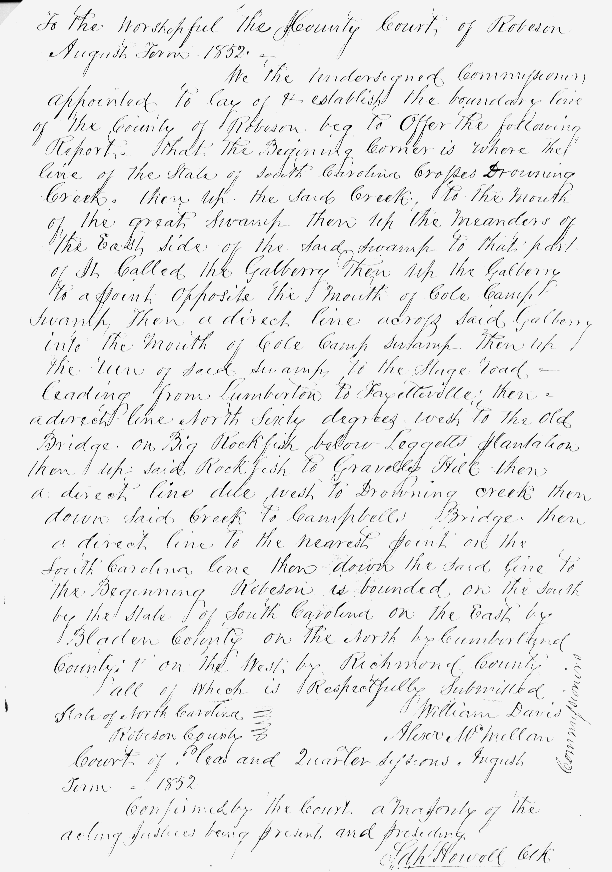 To the Worshopful the County Court of Robeson
August Term 1852.
We the undersigned Commissioners
appointed to lay of & establish the boundary line
of the County of Robeson beg to Offer the following
Report, that the Begining Corner is whore the
line of the State of South Carolina Crosses Drowning
Creek, then up the said Creek, to the Mouth
of the great Swamp then up the Meanders of
the East side of the said swamp to that part
of It Called the Galberry Then up the Galberry
to a Point opposite the Mouth of Cole Camp
Swamp Then a direct line across said Galberry
into the Mouth of Cole Camp swamp then up
the run of said swamp to the Stage road
leading from Lumberton to Fayetteville; then
a direct line North Sixty degrees west to the Old
Bridge on Big Rockfish below Leggetts Plantation
then up said Rockfish to Gravelly Hill then
a direct line due west to Drowning creek then
down said Creek to Campbells Bridge then
a direct line to the nearest point on the
South Carolina line then down the said line to
the Beginning Robeson is bounded on the south
by the State of South Carolina on the East by
Bladen County on the North by Cumberland
County & on the West by Richmond County
all of which is Respectfully Submitted
State of North Carolina
Robeson County
William Davis
Alexr McMillan
Commissioners
Court of Pleas and Quarter Sessions August
Term 1852
Confirmed by the Court a majority of the
acting Justices being present and presiding
Howell Clk